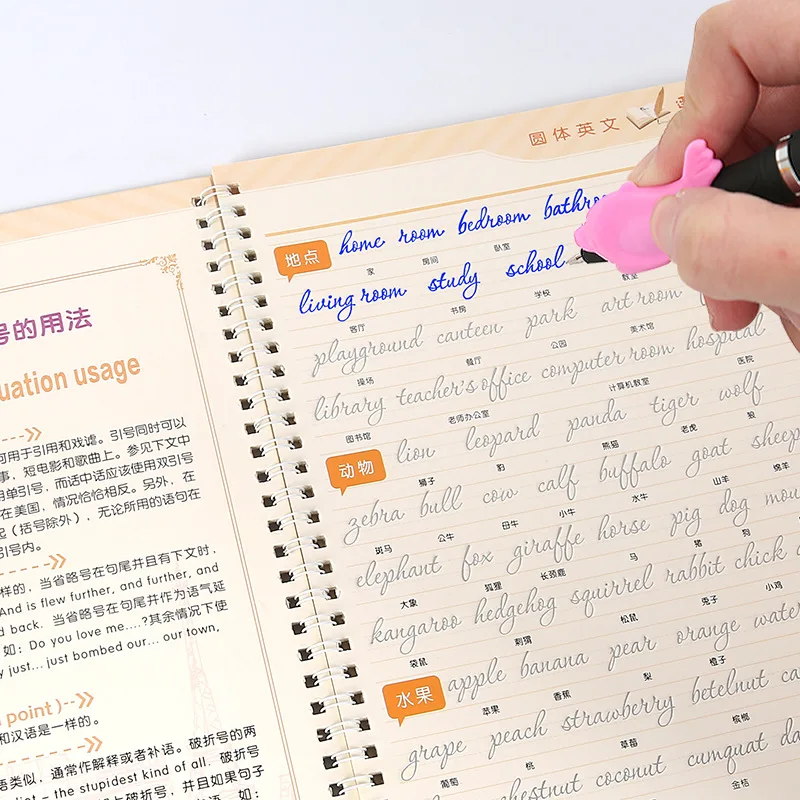 号的用法
uation usage
可用于引用和戏谑。引号同时可以
事，短电影和歌曲上。参见下文中
用单引号，而话中话应该使用双引号
在美国，情况恰恰相反。另外，在
起（括号除外），无论所用的语句在
引号内。
样的，当省略号在句尾并且有下文时，
And is flew further, and further, and
d back. 当省略号在句尾并作为语气延
如：Do you love me....?其余情况下使
y just... just bombed our... our town,
point)
和汉语是一样的。
语类似，通常作解释或者补语。破折号的两
– the stupidest kind of all. 破折号
，并且如果句子
圆体英文
地点
home room bedroom
家 房间 卧室
living room study school
客厅 书房 学校 教室
playground canteen park art room
操场 餐厅 公园 美术馆
library teacher's office computer room hospital
图书馆 老师办公室 计算机教室 医院
动物
lion leopard panda tiger wolf
狮子 豹 熊猫 老虎 狼
zebra bull cow calf buffalo goat sheep
斑马 公牛 母牛 小牛 水牛 山羊 绵羊
elephant fox giraffe horse pig dog
大象 狐狸 长颈鹿 马 猪 狗
kangaroo hedgehog squirrel rabbit chick
袋鼠 刺猬 松鼠 兔子 小鸡
水果
apple banana pear orange
苹果 香蕉 梨 橙子
grape peach strawberry betelnut
葡萄 桃 草莓 槟榔
chestnut coconut cumquat
金桔